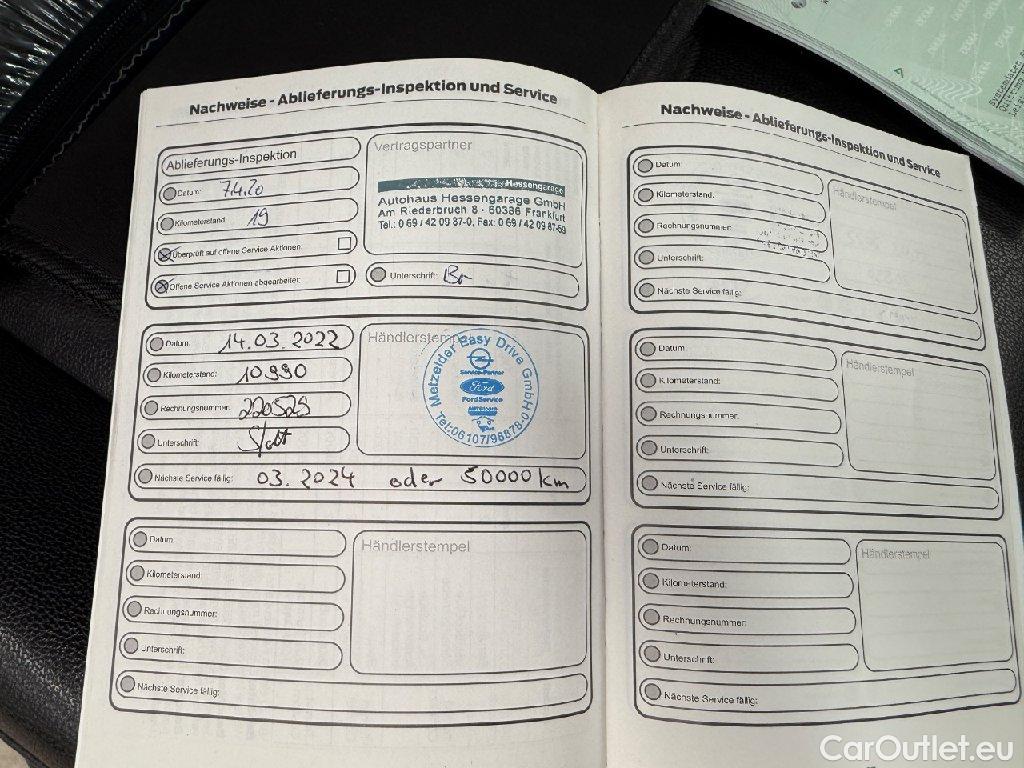 Nachweise - Ablieferungs-Inspektion und Service
Ablieferungs-Inspektion
Datum: 7.4.20
Kilometerstand: 19
Überprüft auf offene Service Aktionen:
Offene Service Aktionen abgearbeitet:
Vertragspartner
Hessengarage
Autohaus Hessengarage GmbH
Am Riederbruch 8 - 60386 Frankfurt
Tel.: 0 69 / 42 09 87-0, Fax: 0 69 / 42 09 87-69
Unterschrift:
Datum: 14.03.2022
Kilometerstand: 10990
Rechnungsnummer: 220525
Unterschrift:
Nächste Service fällig: 03.2024 oder 50000 km
Händlerstempel
Metzelder Easy Drive GmbH
Service-Partner
Ford
FordService
Tel.:06107/96879-0
Datum:
Kilometerstand:
Rechnungsnummer:
Unterschrift:
Nächste Service fällig:
Händlerstempel
Nachweise - Ablieferungs-Inspektion und Service
Datum:
Kilometerstand:
Rechnungsnummer:
Unterschrift:
Nächste Service fällig:
Händlerstempel
Datum:
Kilometerstand:
Rechnungsnummer:
Unterschrift:
Nächste Service fällig:
Händlerstempel
Datum:
Kilometerstand:
Rechnungsnummer:
Unterschrift:
Nächste Service fällig:
Händlerstempel
DEKRA
CarOutlet.eu